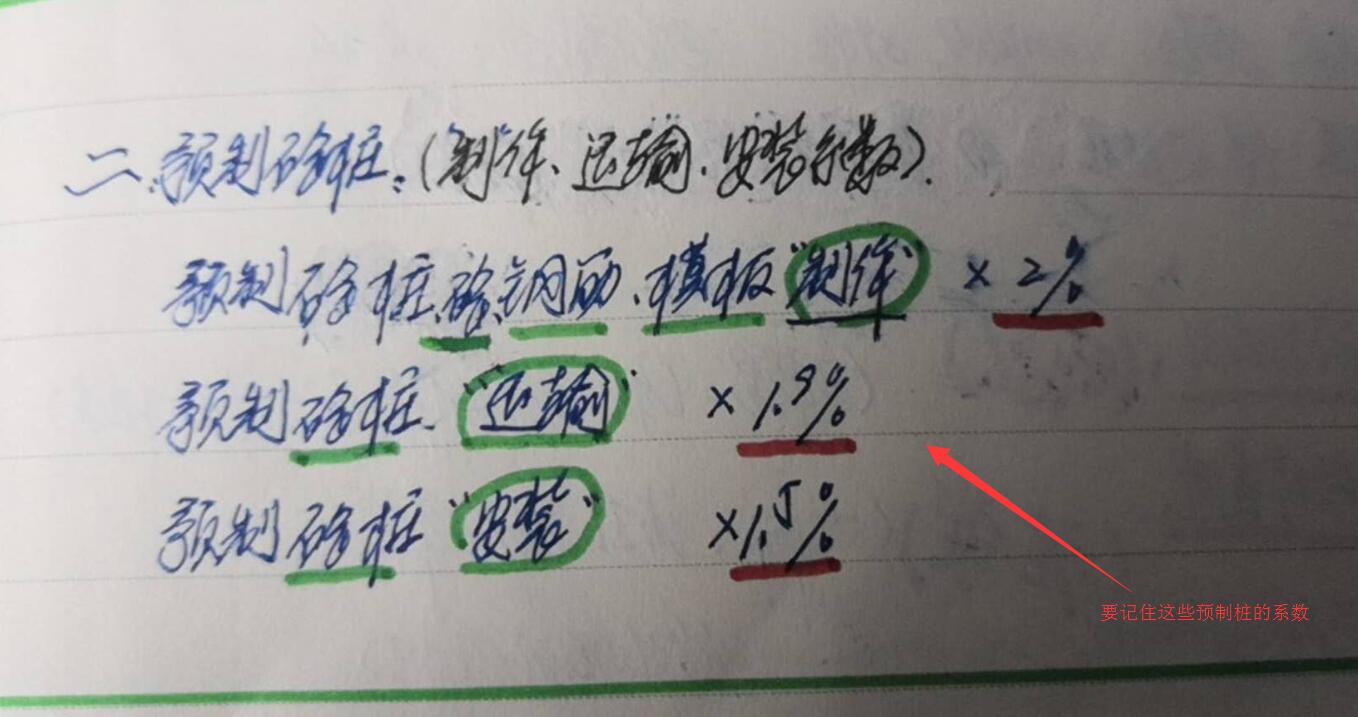 二、预制砼桩。(制作、运输、安装系数).
预制砼桩、砼、钢筋、模板"制作" ×2%
预制砼桩、"运输" ×1.9%
预制砼桩"安装" ×1.5%
要记住这些预制桩的系数